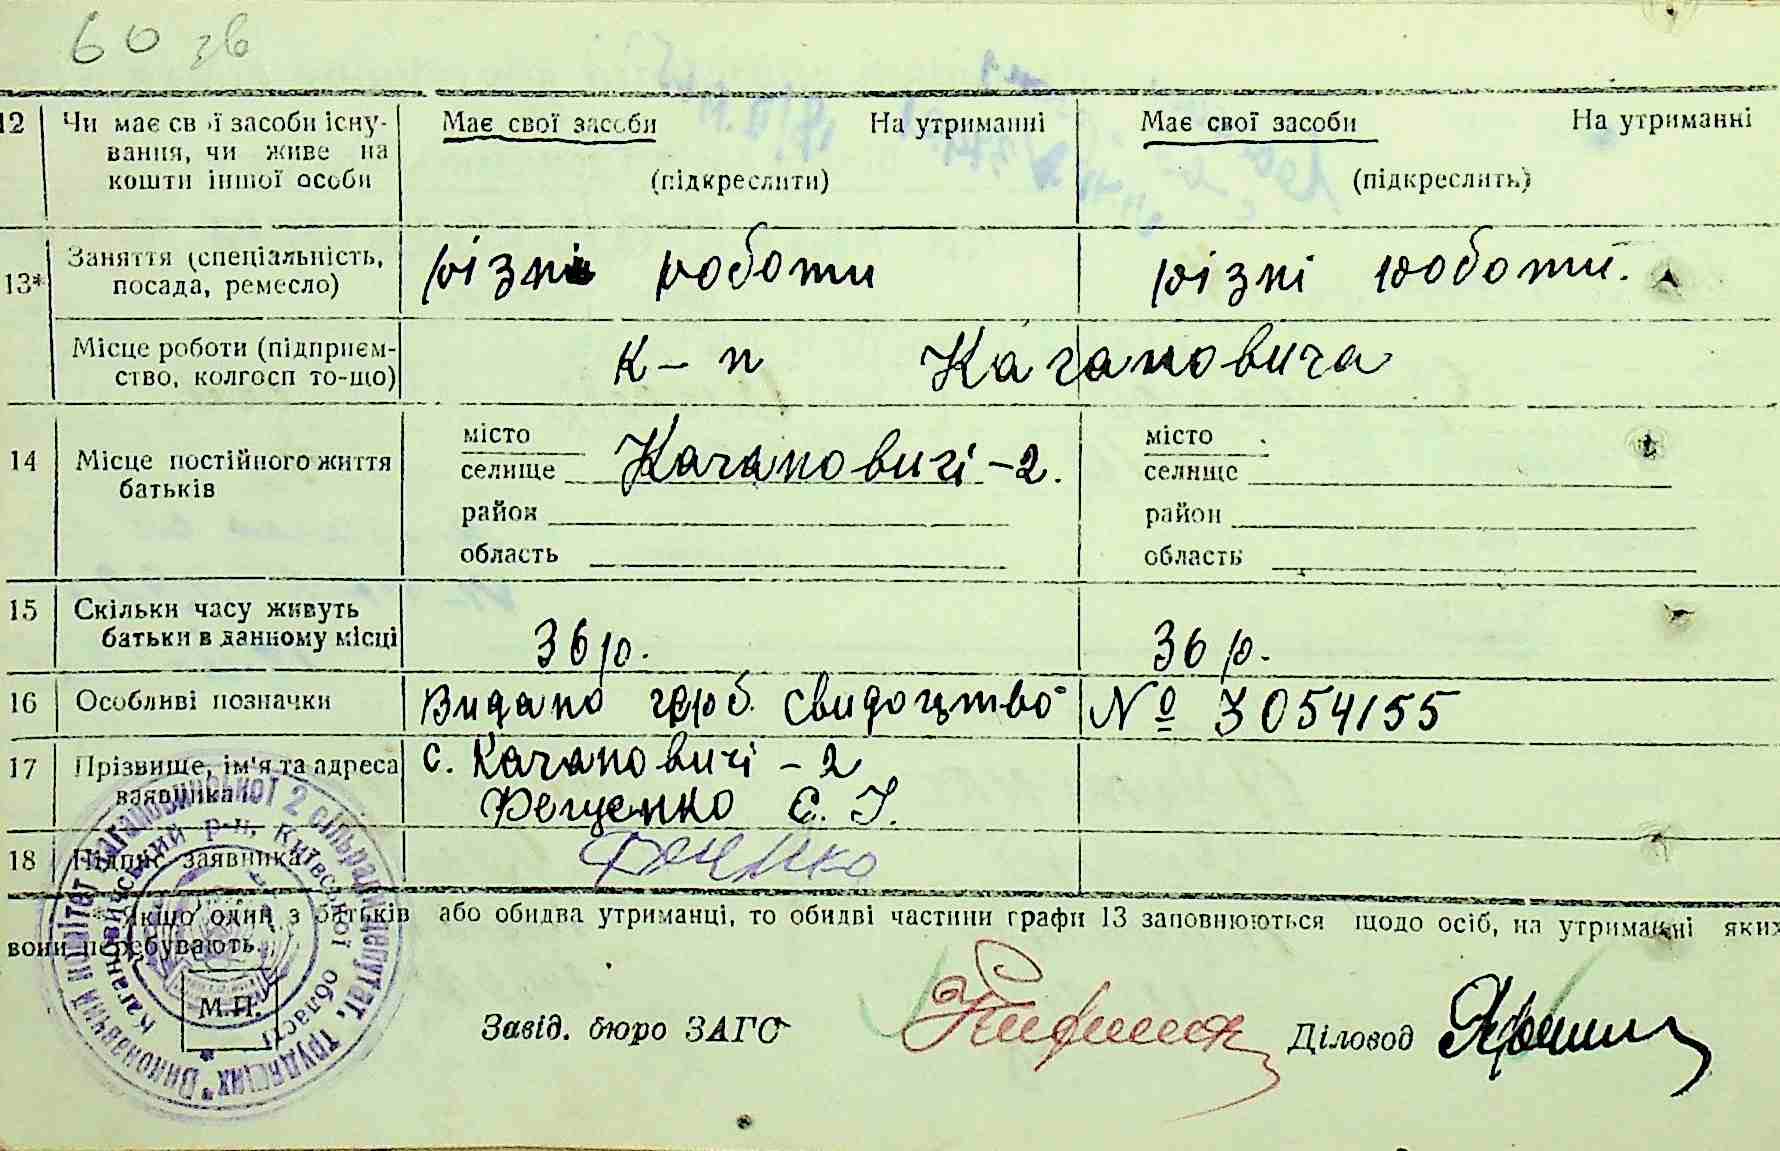 60 зв
12 Чи має свої засоби існу-
вання, чи живе на
кошти іншої особи
Має свої засоби На утриманні
(підкреслити)
Має свої засоби На утриманні
(підкреслить)
13* Заняття (спеціальність,
посада, ремесло)
різні роботи
різні роботи.
Місце роботи (підприєм-
ство, колгосп то-що)
к-п Кагановича
14 Місце постійного життя
батьків
місто
селище Кагановичі-2.
район
область
місто
селище
район
область
15 Скільки часу живуть
батьки в данному місці
36 р.
36 р.
16 Особливі позначки
Видано герб. свидоцтво № 3054155
17 Прізвище, ім'я та адреса
заявника
с. Кагановичі - 2
Фещенко Є. І.
18 Підпис заявника
* Якщо один з батьків або обидва утриманці, то обидві частини графи 13 заповнюються щодо осіб, на утриманні яких
вони перебувають.
М.П.
Завід. бюро ЗАГС
Діловод
Виконавчий комітет Кагановицької 2 сільради депутат. трудящих
Кагановичський р-н, Київської області